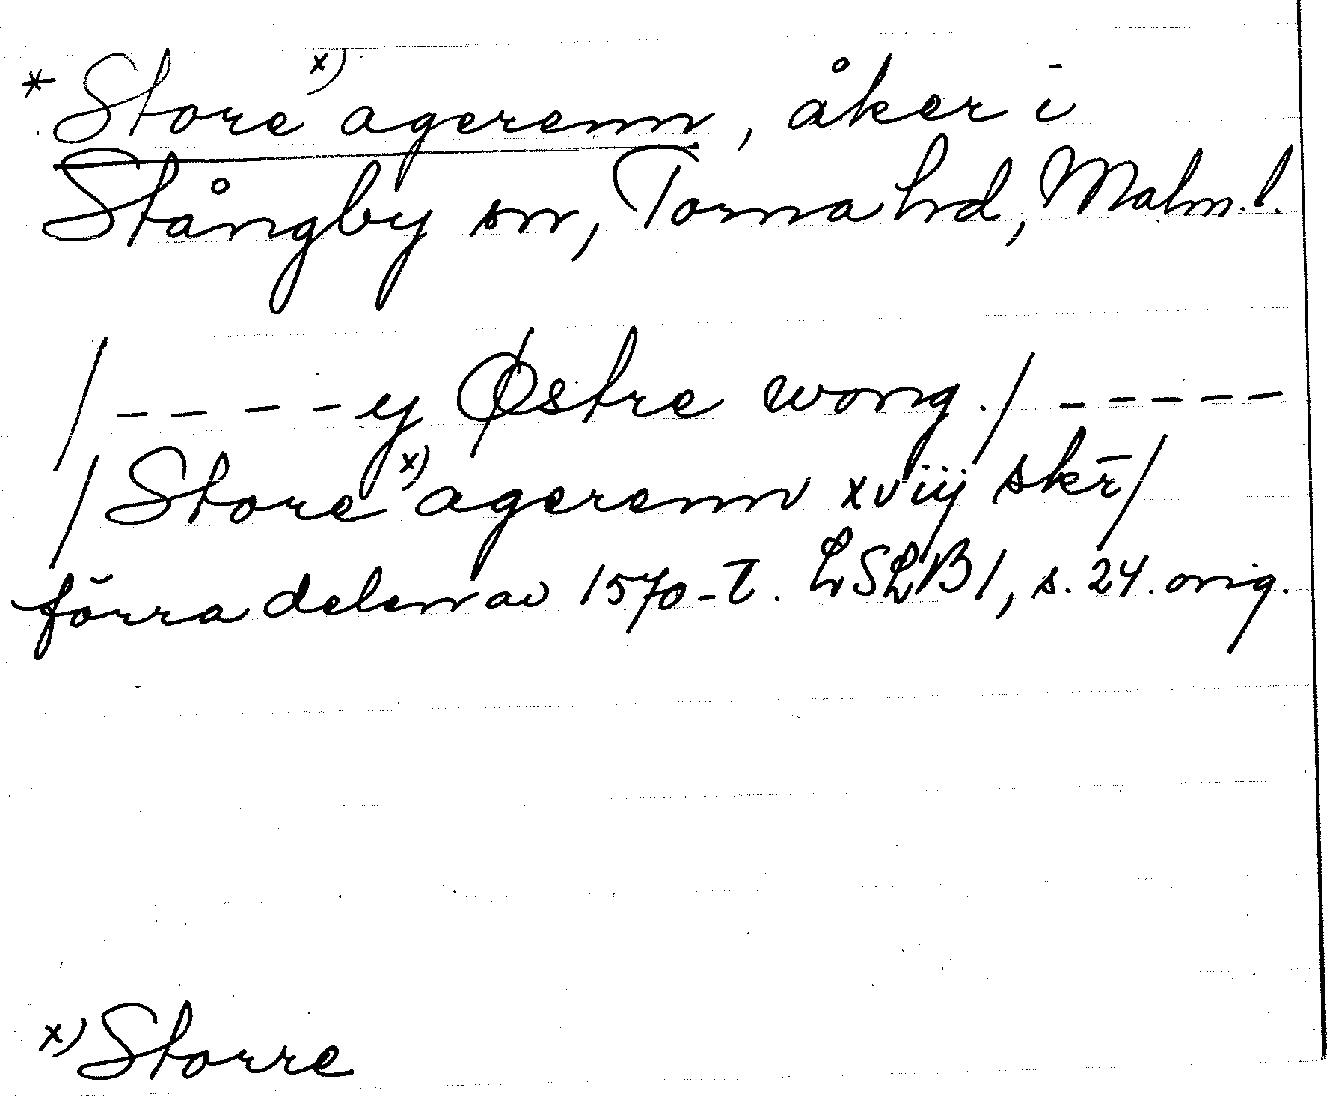 * Store x) agerenn, åker i
Stångby sn, Torna hd, Malm. l.
/ - - - - ij Østre wong. / - - - - -
/ Store x) agerenn xviij skr̄ /
förra delen av 1570-t. LSLB 1, s. 24. orig.
x) Storre